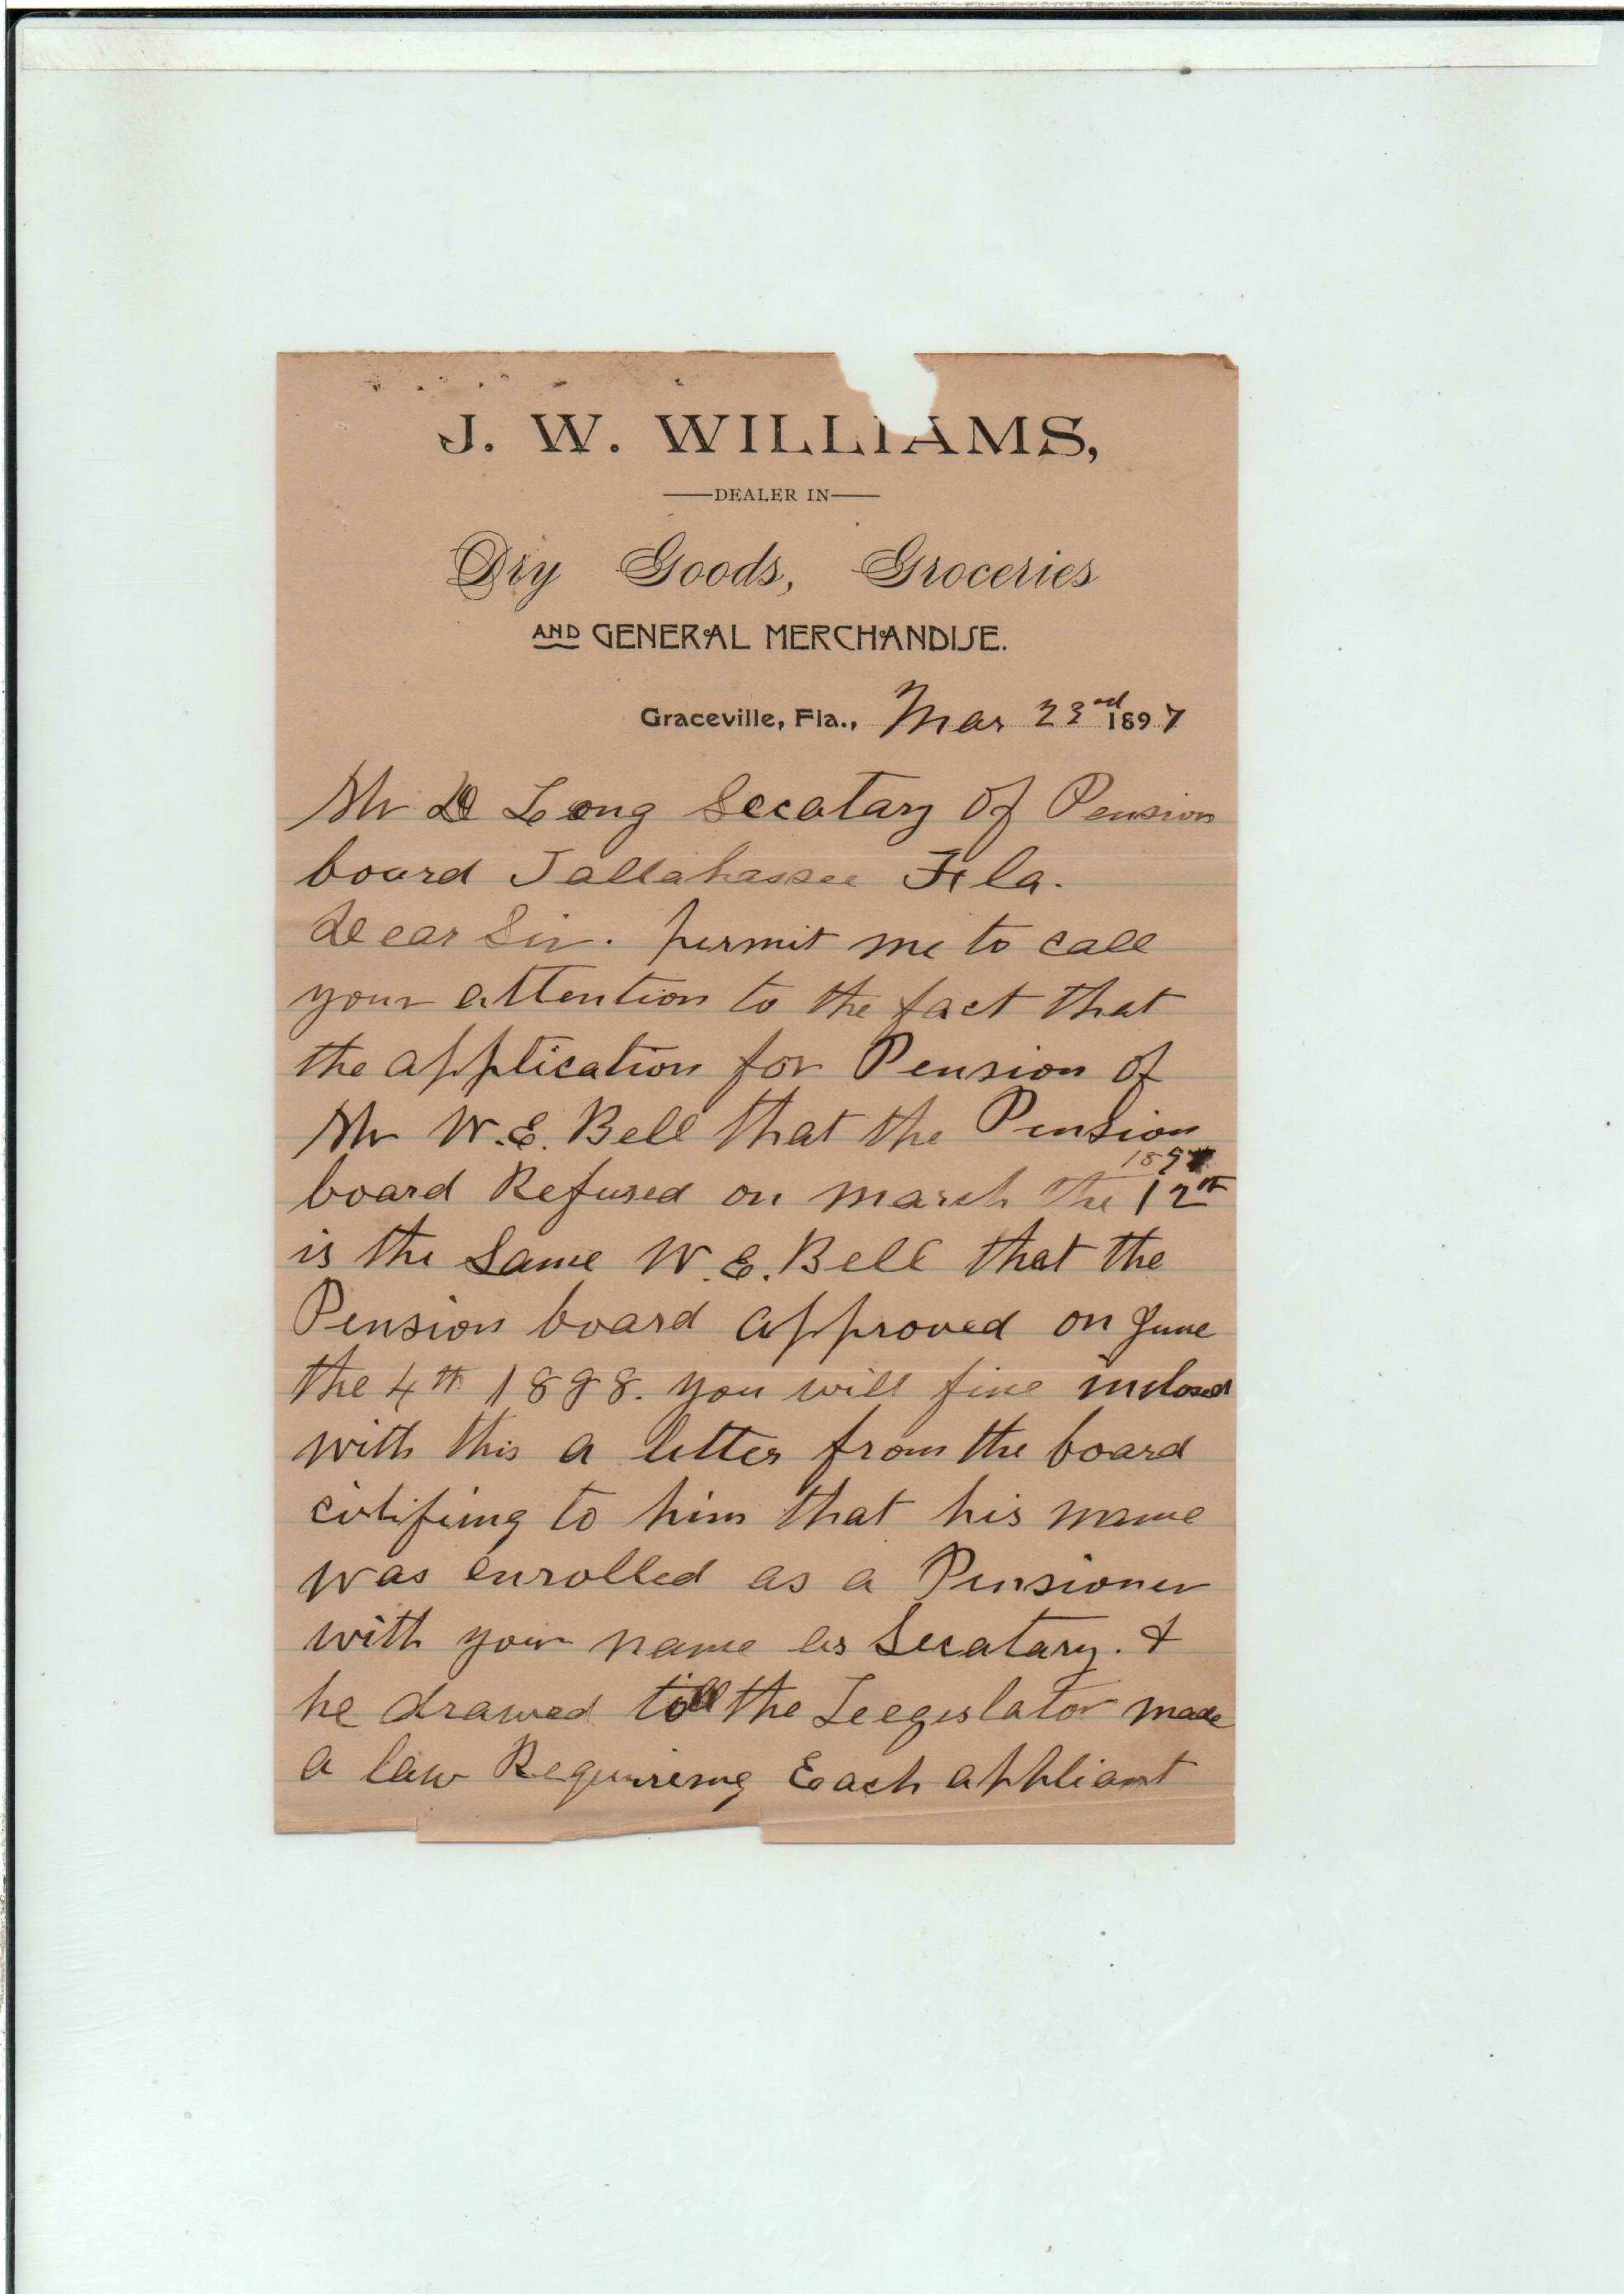 J. W. WILLIAMS,
DEALER IN
Dry Goods, Groceries
AND GENERAL MERCHANDISE.
Graceville, Fla., Mar 23rd 1897
Mr D Long Secatary Of Pension
board Tallahassee Fla.
Dear Sir. permit me to call
your attention to the fact that
the application for Pension of
Mr W.E. Bell that the Pension
1897
board Refused on march the 12th
is the Same W.E. Bell that the
Pension board approved on June
the 4th 1898. you will fine inclosed
with this a letter from the board
citifiing to him that his name
was enrolled as a Pensioner
with your name as Secatary. &
he drawed till the Leegislator made
a law Requireing Each appliant